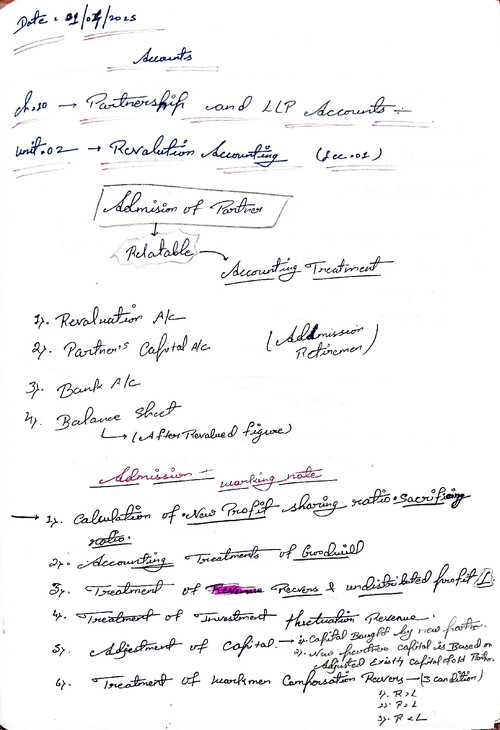 Date: 01/07/2025
Accounts
ch.10 → Partnership and LLP Accounts :-
unit.02 → Revalution Accounting (Lec.01)
Admision of Partner
Relatable
Accounting Treatment
1). Revaluation A/c
2). Partner's Capital A/c
(Addmission
Retiremen)
3). Bank A/c
4). Balance Sheet
→ (After Revalued figure)
Admission - working note
→ 1). Calculation of New Profit sharing ratio. Sacrifising
ratio.
2). Accounting Treatments of Goodwill
3). Treatment of Recvers & undistributed profit/L.
4). Treatment of Investment fluctuation Revenue.
5). Adjectment of Capital. → 1). Capital Baught by new partner.
2). New partners capital is Based on
Adjusted Existy Capital of old Partner.
6). Treatment of workmen Compersation Recvers → (3 candition)
1). R > L
2). R = L
3). R < L